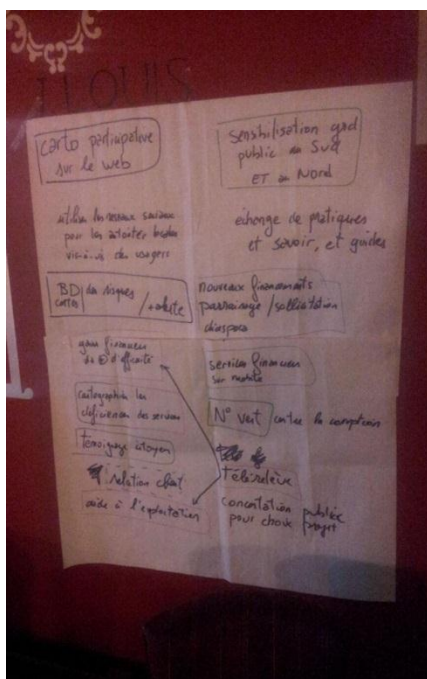 LOUIS
carto participative
sur le web
Sensibilisation grd
public au Sud
ET au Nord
utiliser les réseaux sociaux
pour les
vis-à-vis des usagers
échange de pratiques
et savoir, et guides
BD des risques
cartes / + alerte
nouveaux financements
parrainage / sollicitation
diaspora
gains financiers
d'efficacité
services financiers
sur mobile
cartographier les
déficiences des services
N° Vert contre la corruption
témoignage citoyen
relation client
Télérelève
aide à l'exploitation
concertation publique
pour choix projet